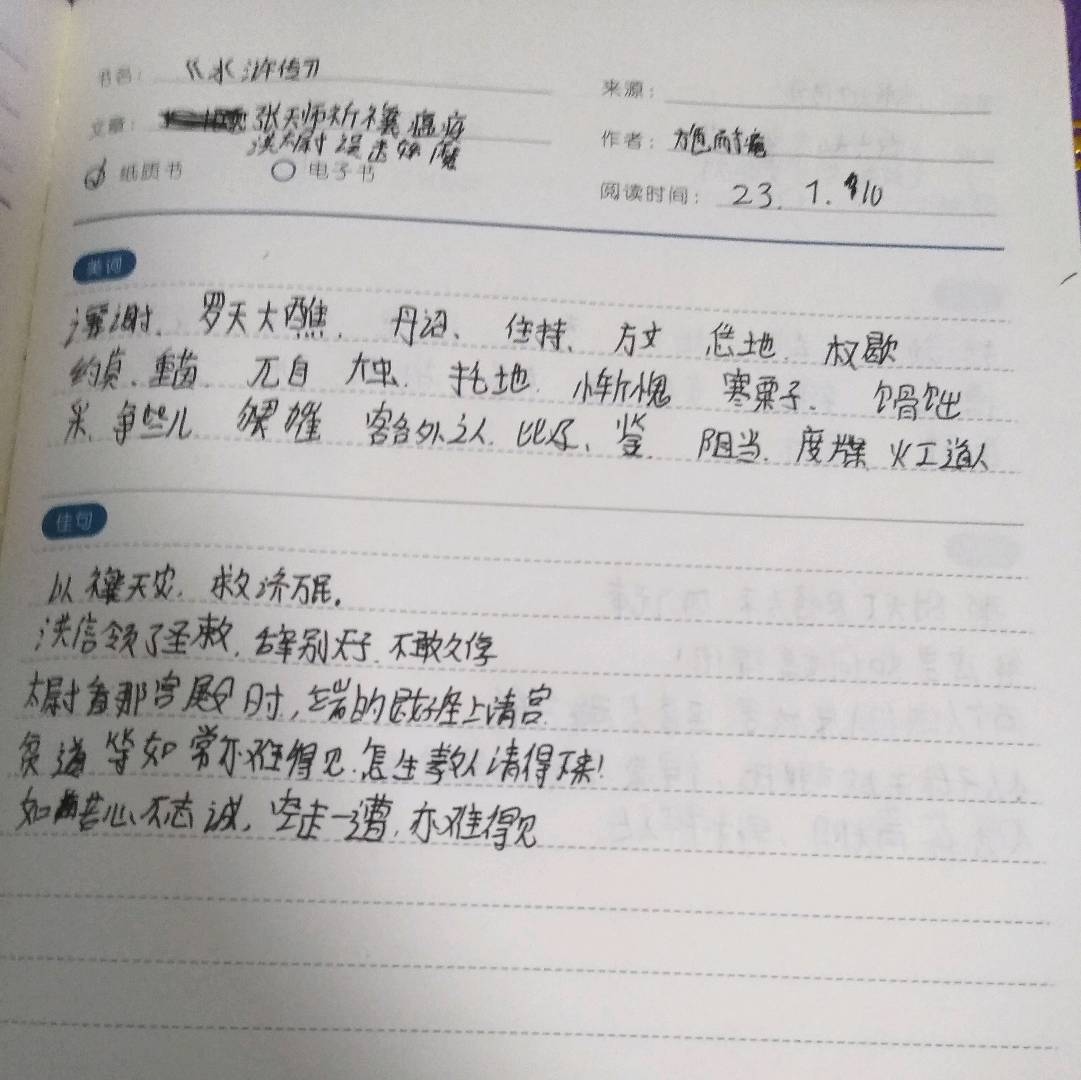 书名： 《水浒传》
来源：
文章： 张天师祈禳瘟疫
洪太尉误走妖魔
作者： 施耐庵
纸质书 电子书
阅读时间： 23. 1. 10
美词
罗天大醮、 丹诏、 住持、 方丈 恁地、 权歇
约莫、 重茵、 兀自 大虫、 托地、 惭愧 寒粟子、 馉饳
米、争些儿 猥獕 客外之人、比及、 鉴 阻当、 度牒、火工道人
佳句
以禳天灾，救济万民。
洪信领了圣敕，辞别天子，不敢久停
太尉看那宫殿时，端的是好座上清宫
贫道等如常亦难得见，怎生教人请得下来！
如若心不志诚，空走一遭，亦难得见